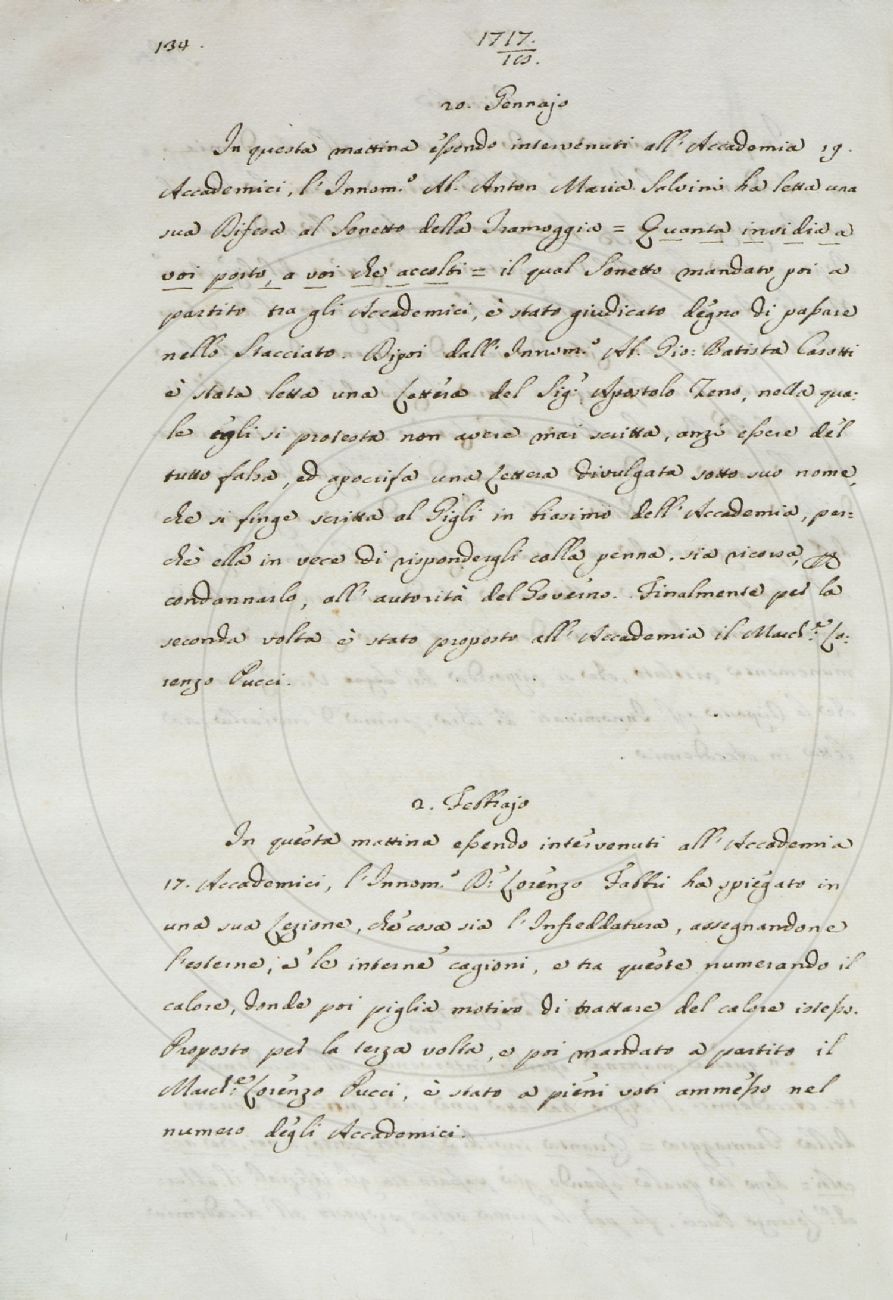 134.
1717.
/CO.
20. Gennajo
In questa mattina eſsendo intervenuti all' Accademia 19.
Accademici, l'Innom.º Ab. Anton Maria Salvini ha letta una
sua Difesa al Sonetto della Tramoggia = Quanta invidia a
voi porto, a voi che accolti = il qual Sonetto mandato poi a
partito tra gli Accademici, è stato giudicato degno di paſsare
nello Stacciato. Dipoi dall' Innom.º Ab. Gio: Batista Casotti
è stata letta una Lettera del Sig.r Apostolo Zeno, nella qua:
le egli si protesta non avere mai scritta, anzi eſsere del
tutto falsa, ed apocrifa una Lettera divulgata sotto suo nome,
che si finge scritta al Gigli in biasimo dell' Accademia, per:
chè ella in vece di rispondergli colla penna, sia ricorsa,
condannarlo, all' autorità del Governo. Finalmente per la
seconda volta è stato proposto all' Accademia il March.e Lo:
renzo Pucci.
2. Febbrajo
In questa mattina eſsendo intervenuti all' Accademia
17. Accademici, l'Innom.º D.r Lorenzo Fabbri ha spiegato in
una sua Lezione, che cosa sia l'Infreddatura, assegnandone
l'esterne, e le interne cagioni, e tra queste numerando il
calore, donde poi piglia motivo di trattare del calore isteſso.
Proposto per la terza volta, e poi mandato a partito il
March.e Lorenzo Pucci, è stato a pieni voti ammeſso nel
numero degli Accademici.